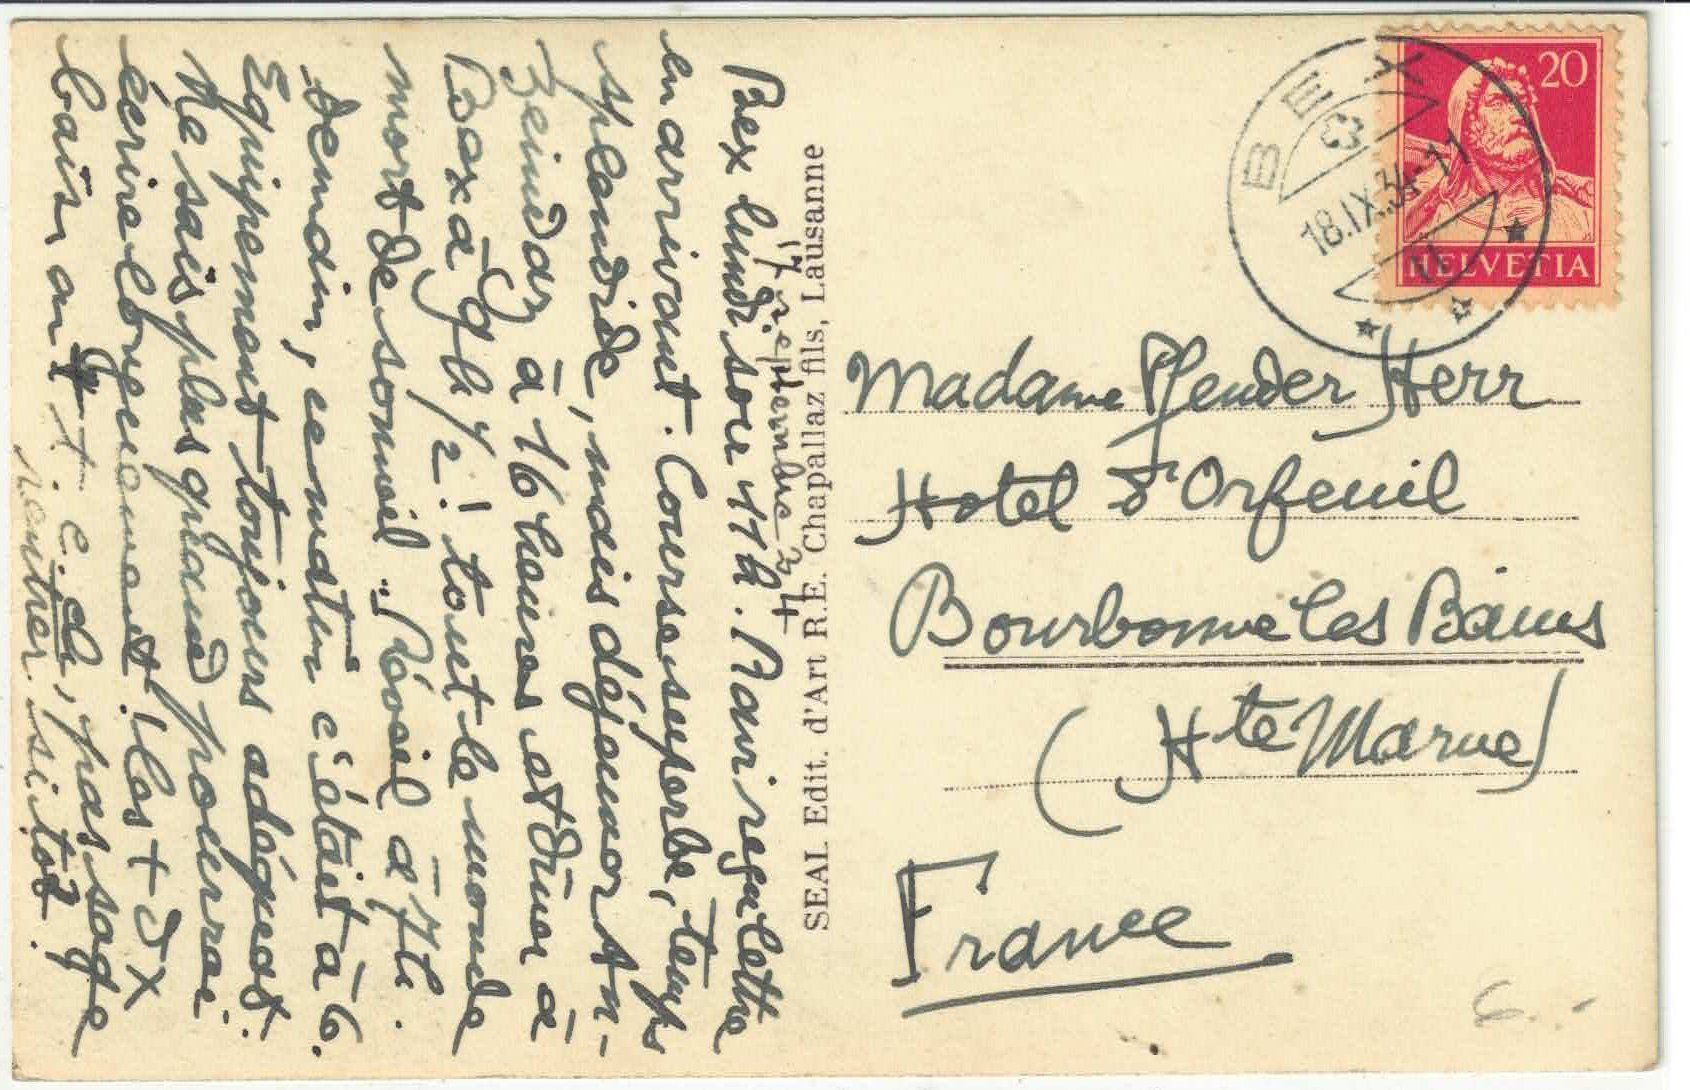 Bex lundi soir 11h. Ravi reçu lettre
17 septembre 34
en arrivant. Course superbe, temps
splendide, mais déjeuner An-
zeindaz à 16 heures et dîner à
Bex à 9h 1/2 ! tout le monde
mort de sommeil. Réveil à 7h.
demain, ce matin c'était à 6.
Equipement toujours adéquat.
Ne sais plus quand pourrai
écrire longuement. Iles + dx
baisers an t. c. ch, pas sage
rentrer si tôt.
SEAL Edit. d'Art R.E. Chapallaz fils, Lausanne
BEX
18.IX.34-11
20
HELVETIA
Madame Pfender Herr
Hotel d'Orfeuil
Bourbonne les Bains
(Hte Marne)
France
6.-